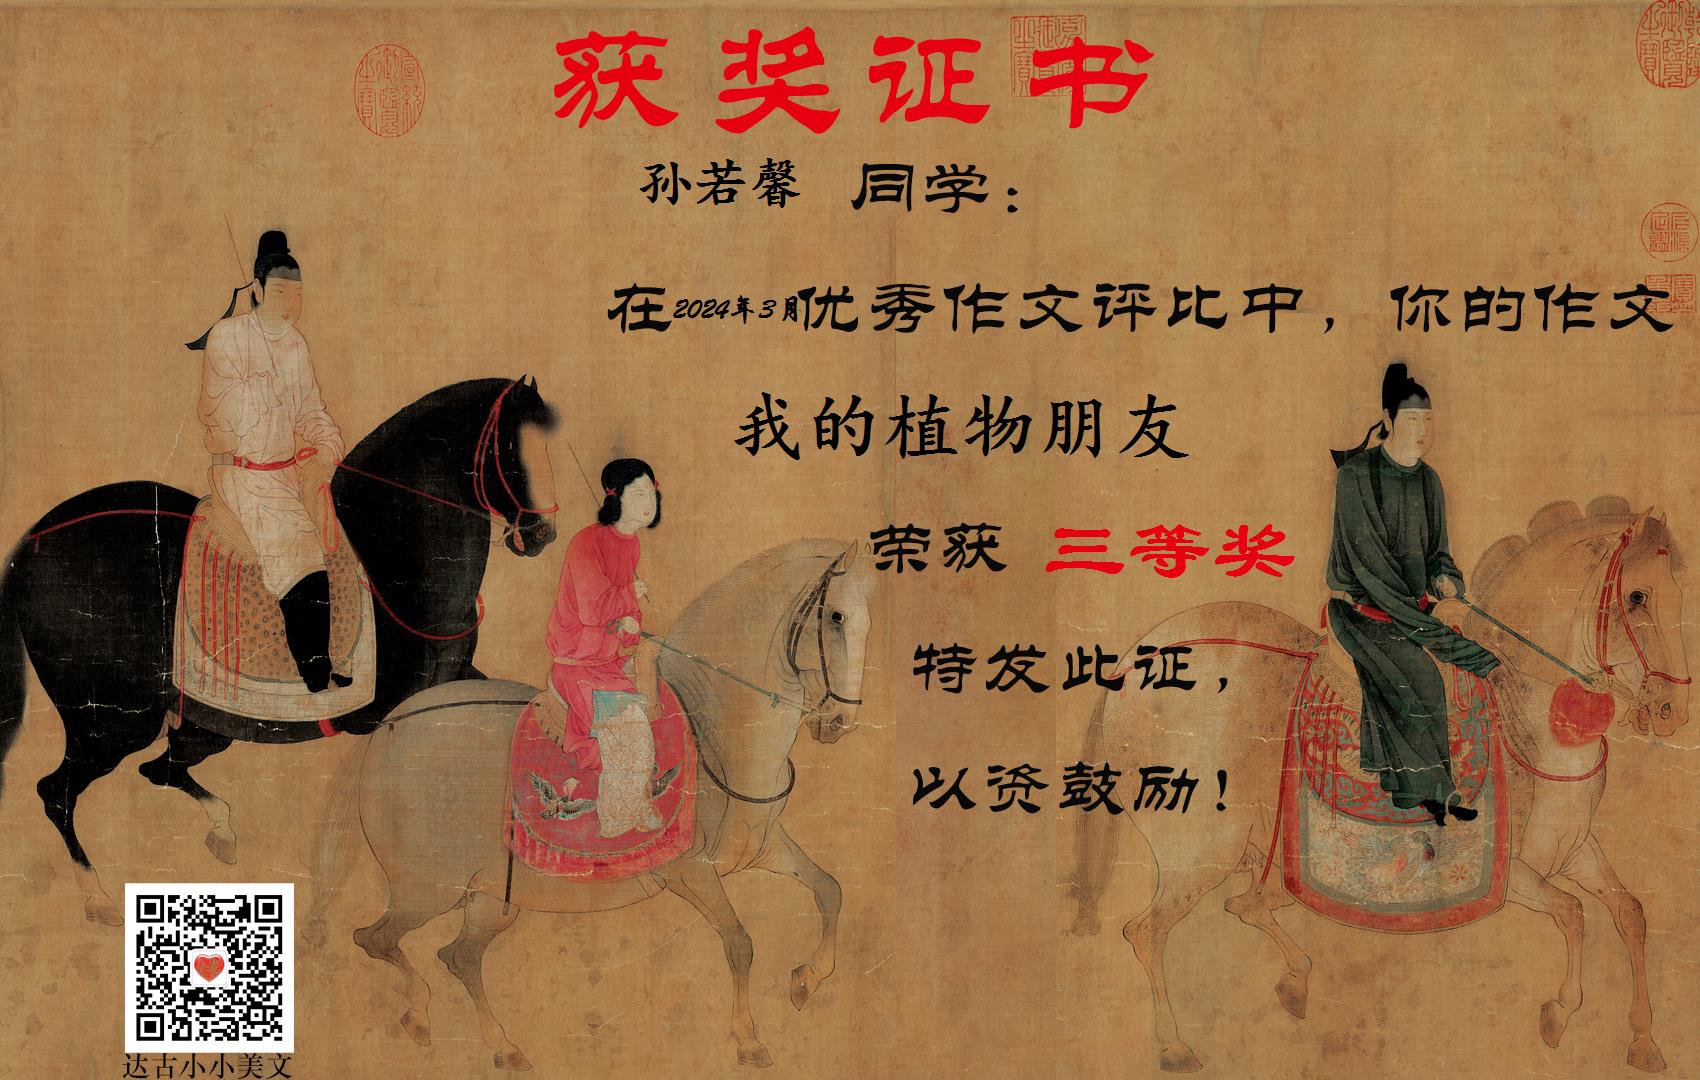 获奖证书
孙若馨 同学：
在2024年3月优秀作文评比中，你的作文
我的植物朋友
荣获 三等奖
特发此证，
以资鼓励！
达古小小美文